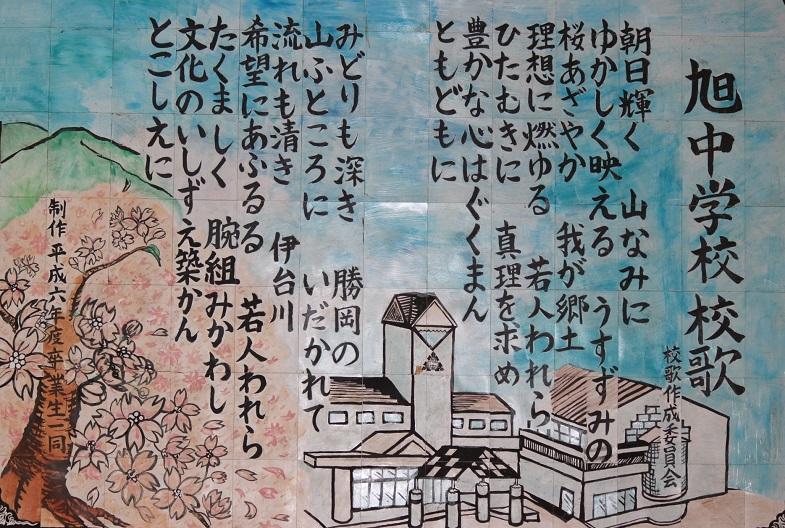 旭中学校校歌
校歌作成委員会
朝日輝く 山なみに
ゆかしく映える うすずみの
桜あざやか 我が郷土
理想に燃ゆる 若人われら
ひたむきに 真理を求め
豊かな心はぐくまん
ともどもに
みどりも深き 勝岡の
山ふところに いだかれて
流れも清き 伊台川
希望にあふるる 若人われら
たくましく 腕組みかわし
文化のいしずえ築かん
とこしえに
制作 平成六年度卒業生一同